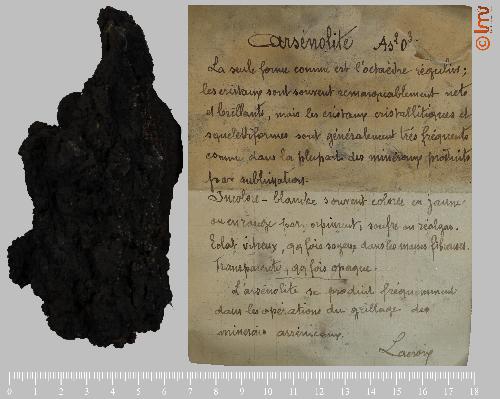 Arsénolite As²O³
La seule forme connue est l'octaèdre régulier;
les cristaux sont souvent remarquablement nets
et brillants, mais les cristaux cristallitiques et
squelettiformes sont généralement très fréquents
comme dans la plupart des minéraux produits
par sublimation.
Incolore - blanche souvent colorée en jaune
ou en rouge par orpiment, soufre ou réalgar.
Eclat vitreux, qqfois soyeux dans les masses fibreuses.
Transparente, qqfois opaque.
L'arsénolite se produit fréquemment
dans les opérations du grillage des
minerais arsénicaux.
Lacroix
© lmv
0 1 2 3 4 5 6 7 8 9 10 11 12 13 14 15 16 17 18